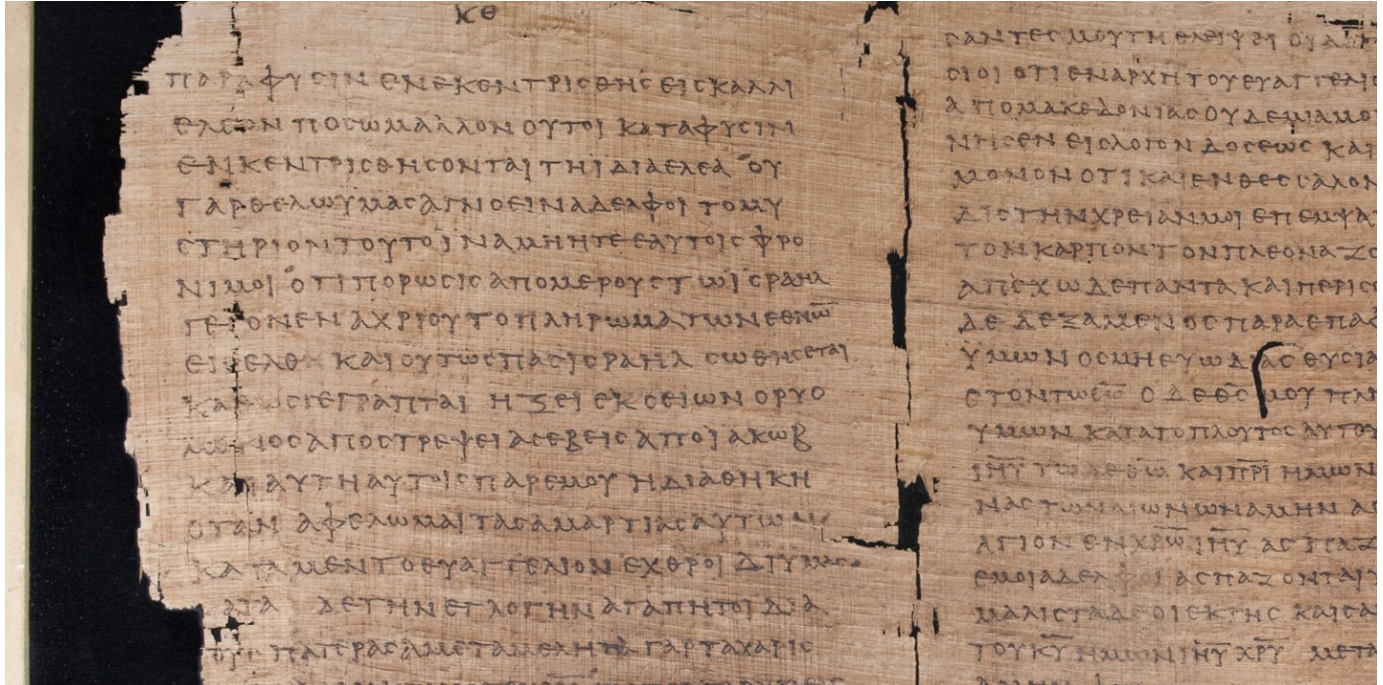 ΚΘ
ΠΑΡΑΦΥΣΙΝ ΕΝΕΚΕΝΤΡΙΣΘΗΣ ΕΙΣ ΚΑΛΛΙ
ΕΛΕΟΝ ΠΟΣΩ ΜΑΛΛΟΝ ΟΥΤΟΙ ΚΑΤΑ ΦΥΣΙΝ
ΕΝΚΕΝΤΡΙΣΘΗΣΟΝΤΑΙ ΤΗ ΙΔΙΑ ΕΛΕΑ ΟΥ
ΓΑΡ ΘΕΛΩ ΥΜΑΣ ΑΓΝΟΕΙΝ ΑΔΕΛΦΟΙ ΤΟ ΜΥ
ΣΤΗΡΙΟΝ ΤΟΥΤΟ ΙΝΑ ΜΗ ΗΤΕ ΕΑΥΤΟΙΣ ΦΡΟ
ΝΙΜΟΙ ΟΤΙ ΠΟΡΩΣΙΣ ΑΠΟ ΜΕΡΟΥΣ ΤΩ ΙΣΡΑΗΛ
ΓΕΓΟΝΕΝ ΑΧΡΙ ΟΥ ΤΟ ΠΛΗΡΩΜΑ ΤΩΝ ΕΘΝΩ̅
ΕΙΣΕΛΘ ΚΑΙ ΟΥΤΩΣ ΠΑΣ ΙΣΡΑΗΛ ΣΩΘΗΣΕΤΑΙ
ΚΑΘΩΣ ΓΕΓΡΑΠΤΑΙ ΗΞΕΙ ΕΚ ΣΕΙΩΝ Ο ΡΥΟ
ΜΕΝΟΣ ΑΠΟΣΤΡΕΨΕΙ ΑΣΕΒΕΙΣ ΑΠΟ ΙΑΚΩΒ
ΚΑΙ ΑΥΤΗ ΑΥΤΟΙΣ ΠΑΡ ΕΜΟΥ Η ΔΙΑΘΗΚΗ
ΟΤΑΝ ΑΦΕΛΩΜΑΙ ΤΑΣ ΑΜΑΡΤΙΑΣ ΑΥΤΩΝ
ΚΑΤΑ ΜΕΝ ΤΟ ΕΥΑΓΓΕΛΙΟΝ ΕΧΘΡΟΙ ΔΙ ΥΜΑΣ
ΚΑΤΑ ΔΕ ΤΗΝ ΕΓΛΟΓΗΝ ΑΓΑΠΗΤΟΙ ΔΙΑ
ΤΟΥΣ ΠΑΤΕΡΑΣ ΑΜΕΤΑΜΕΛΗΤΑ ΓΑΡ ΤΑ ΧΑΡΙΣ
ΣΑΝΤΕΣ ΜΟΥ ΤΗ ΘΛΕΙΨΕΙ ΟΥ
ΣΙΟΙ ΟΤΙ ΕΝ ΑΡΧΗ ΤΟΥ ΕΥΑΓΓΕΛΙΟ
ΑΠΟ ΜΑΚΕΔΟΝΙΑΣ ΟΥΔΕΜΙΑ ΜΟΙ
ΝΗΣΕΝ ΕΙΣ ΛΟΓΟΝ ΔΟΣΕΩΣ ΚΑΙ
ΜΟΝΟΝ ΟΤΙ ΚΑΙ ΕΝ ΘΕΣΣΑΛΟΝ
ΔΙΣ ΤΗΝ ΧΡΕΙΑΝ ΜΟΙ ΕΠΕΜΨΑ
ΤΟΝ ΚΑΡΠΟΝ ΤΟΝ ΠΛΕΟΝΑΖΟ
ΑΠΕΧΩ ΔΕ ΠΑΝΤΑ ΚΑΙ ΠΕΡΙΣΣ
ΔΕ ΔΕΞΑΜΕΝΟΣ ΠΑΡΑ ΕΠΑΦ
ΥΜΩΝ ΟΣΜΗ ΕΥΩΔΙΑΣ ΘΥΣΙΑ
ΣΤΟΝ ΤΩ Θ̅Ω̅ Ο ΔΕ Θ̅Σ̅ ΜΟΥ ΠΛΗ
ΥΜΩΝ ΚΑΤΑ ΤΟ ΠΛΟΥΤΟΣ ΑΥΤΟΥ
Ι̅Η̅Υ̅ ΤΩ ΔΕ Θ̅Ω̅ ΚΑΙ Π̅Ρ̅Ι̅ ΗΜΩΝ
ΝΑΣ ΤΩΝ ΑΙΩΝΩΝ ΑΜΗΝ ΑΣ
ΑΓΙΟΝ ΕΝ Χ̅Ρ̅Ω̅ Ι̅Η̅Υ̅ ΑΣΠΑΖ
ΕΜΟΙ ΑΔΕΛΦΟΙ ΑΣΠΑΖΟΝΤΑΙ
ΜΑΛΙΣΤΑ ΔΕ ΟΙ ΕΚ ΤΗΣ ΚΑΙΣΑ
ΤΟΥ Κ̅Υ̅ ΗΜΩΝ Ι̅Η̅Υ̅ Χ̅Ρ̅Υ̅ ΜΕΤΑ